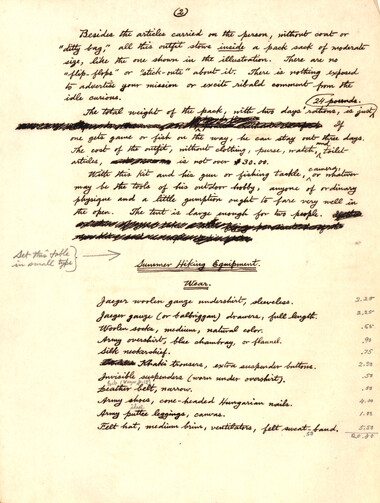 (3)
Besides the articles carried on the person, without coat or
"ditty bag," all this outfit stows inside a pack sack of moderate
size, like the one shown in the illustration. There are no
"flip-flops" or "stick-outs" about it. There is nothing exposed
to advertise your mission or excite ribald comment from the
idle curious.
24 pounds.
The total weight of the pack, with two days' rations, is just
If
one gets game or fish on the way, he can stay out three days.
The cost of the outfit, without clothing, purse, watch, and toilet
articles, is not over $30.00.
With this kit and his gun or fishing tackle, camera, or whatever
may be the tools of his outdoor hobby, anyone of ordinary
physique and a little gumption ought to fare very well in
the open. The tent is large enough for two people.
Set this table
in small type
Summer Hiking Equipment.
Wear.
Jaeger woolen gauze undershirt, sleeveless. 2.25
Jaeger gauze (or balbriggan) drawers, full length. 2.25
Woolen socks, medium, natural color. .50
Army overshirt, blue chambray, or flannel. .90
Silk neckerchief. .75
Khaki trousers, extra suspender buttons. 2.50
Invisible suspenders (worn under overshirt). .50
Leather belt, narrow. .50
Army shoes, cone-headed Hungarian nails. 4.00
Army puttee leggings, canvas. 1.00
Felt hat, medium brim, ventilators, felt sweat-band. 5.50